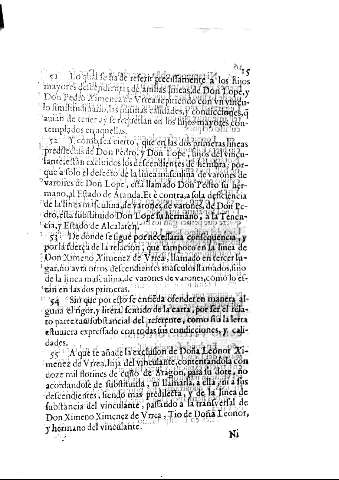 15
51 Lo qual se ha de referir precissamente a los hijos
mayores descendientes de ambas lineas, de Don Lope, y
Don Pedro Ximenez de Vrrea, repitiendo con vn vincu-
lo similitudinario, las mismas calidades, y condiciones, q
auian de tener, y se repetian en los hijos mayores con-
templados en aquellas.
52 Y como sea cierto, que en las dos primeras lineas
predilectas de Don Pedro, y Don Lope, hijos del vincu-
lante, estàn excluidos los descendientes de hembra, por-
que a solo el defecto de la linea masculina de varones de
varones de Don Lope, està llamado Don Pedro su her-
mano, al Estado de Aranda. E è contra, a sola deficiencia
de la linea masculina, de varones, de varones, de Don Pe-
dro, està substituido Don Lope su hermano, a la Tenen-
cia, y Estado de Alcalaten.
53 De donde se sigue por necessaria consequencia, y
por la fuerça de la relacion, que tampoco en la linea de
Don Ximeno Ximenez de Vrrea, llamado en tercer lu-
gar, no avrà otros descendientes masculos llamados, sino
de la linea masculina, de varones, de varones, como lo es-
tàn en las dos primeras.
54 Sin que por esto se entienda ofender en manera al-
guna el rigor, y literal sentido de la carta, por ser el rela-
to parte tan substancial del referente, como si a la letra
estuuiera expressado con todas sus condiciones, y cali-
dades.
55 A que se añade la exclusion de Doña Leonor Xi-
menez de Vrrea, hija del vinculante, contentandola con
doze mil florines de cuño de Aragon, para su dote, no
acordandose de substituirla, ni llamarla, a ella, ni a sus
descendientes, siendo mas predilecta, y de la linea de
substancia del vinculante, passando a la transversal de
Don Ximeno Ximenez de Vrrea, Tio de Doña Leonor,
y hermano del vinculante.
Ni